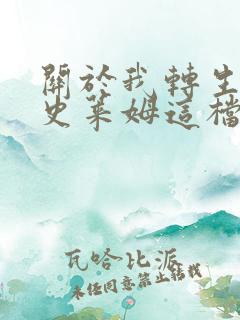 關於我轉生
史萊姆這檔
瓦哈比派
未经同意禁止转载